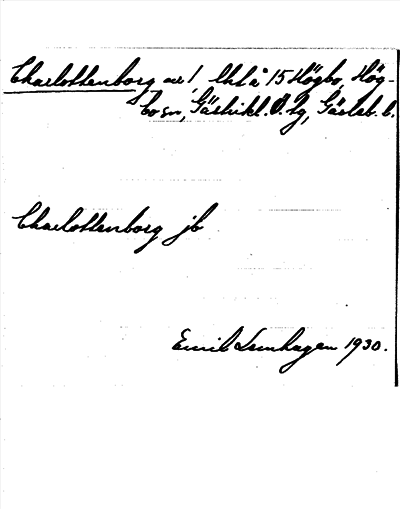 Charlottenborg av 1 lht å 15 Högbo, Hög-
bo sn, Gästrikl. Ö. tg, Gävleb. l.
Charlottenborg jb
Emil Lenhagen 1930.